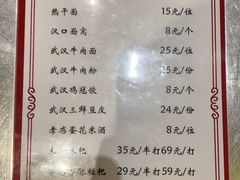 热干面 15元/位
汉口面窝 8元/个
武汉牛肉面 25元/位
武汉牛肉粉 25元/位
武汉鸡冠饺 8元/个
武汉三鲜豆皮 24元/份
孝感蒌花米酒 8元/位
35元/半打69元/打
29元/半打59元/打